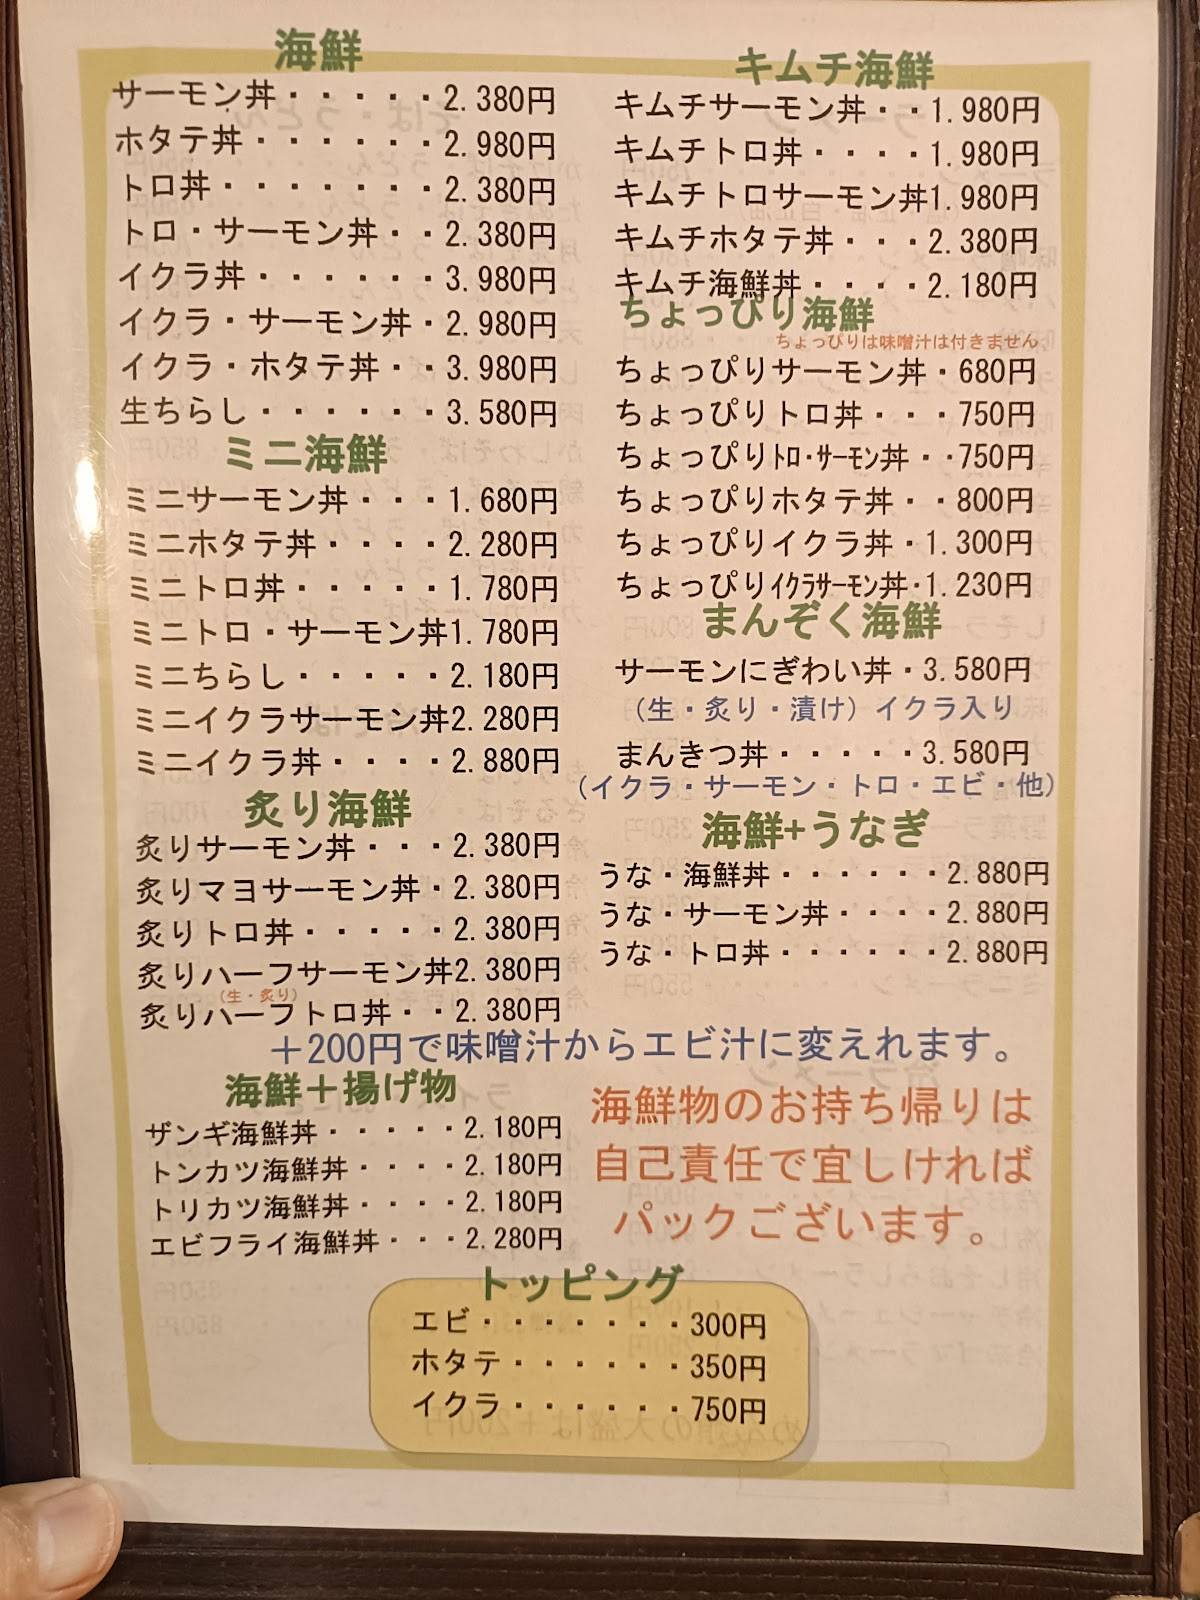 海鮮
サーモン丼・・・・・2.380円
ホタテ丼・・・・・・2.980円
トロ丼・・・・・・・2.380円
トロ・サーモン丼・・2.380円
イクラ丼・・・・・・3.980円
イクラ・サーモン丼・2.980円
イクラ・ホタテ丼・・3.980円
生ちらし・・・・・・3.580円
ミニ海鮮
ミニサーモン丼・・・1.680円
ミニホタテ丼・・・・2.280円
ミニトロ丼・・・・・1.780円
ミニトロ・サーモン丼1.780円
ミニちらし・・・・・2.180円
ミニイクラサーモン丼2.280円
ミニイクラ丼・・・・2.880円
炙り海鮮
炙りサーモン丼・・・2.380円
炙りマヨサーモン丼・2.380円
炙りトロ丼・・・・・2.380円
炙りハーフサーモン丼2.380円
(生・炙り)
炙りハーフトロ丼・・2.380円
キムチ海鮮
キムチサーモン丼・・1.980円
キムチトロ丼・・・・1.980円
キムチトロサーモン丼1.980円
キムチホタテ丼・・・2.380円
キムチ海鮮丼・・・・2.180円
ちょっぴり海鮮
ちょっぴりは味噌汁は付きません
ちょっぴりサーモン丼・680円
ちょっぴりトロ丼・・・750円
ちょっぴりﾄﾛ・ｻｰﾓﾝ丼・・750円
ちょっぴりホタテ丼・・800円
ちょっぴりイクラ丼・1.300円
ちょっぴりｲｸﾗｻｰﾓﾝ丼・1.230円
まんぞく海鮮
サーモンにぎわい丼・3.580円
(生・炙り・漬け) イクラ入り
まんきつ丼・・・・・3.580円
(イクラ・サーモン・トロ・エビ・他)
海鮮+うなぎ
うな・海鮮丼・・・・・・2.880円
うな・サーモン丼・・・・2.880円
うな・トロ丼・・・・・・2.880円
＋200円で味噌汁からエビ汁に変えれます。
海鮮＋揚げ物
ザンギ海鮮丼・・・・・2.180円
トンカツ海鮮丼・・・・2.180円
トリカツ海鮮丼・・・・2.180円
エビフライ海鮮丼・・・2.280円
海鮮物のお持ち帰りは
自己責任で宜しければ
パックございます。
トッピング
エビ・・・・・・・300円
ホタテ・・・・・・350円
イクラ・・・・・・750円